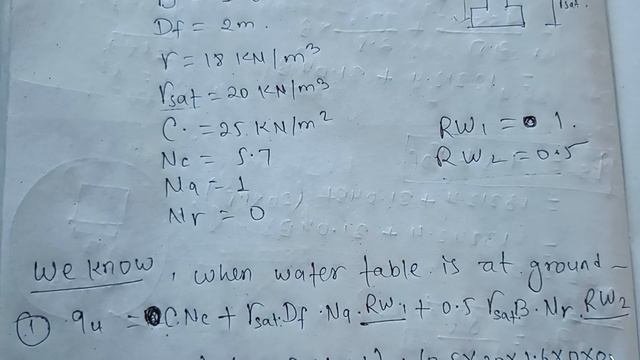 Df = 2m.
γ = 18 KN/m³
γsat = 20 KN/m³
C. = 25 KN/m²
Nc = 5.7
Nq = 1
Nr = 0
RW1 = 1.
RW2 = 0.5
We know, when water table is at ground ~
① qu = C.Nc + γsat.Df .Nq. RW1 + 0.5 γsat.B. Nr. RW2